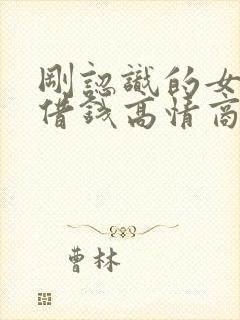 剛認識的女
借錢高情商
曹林